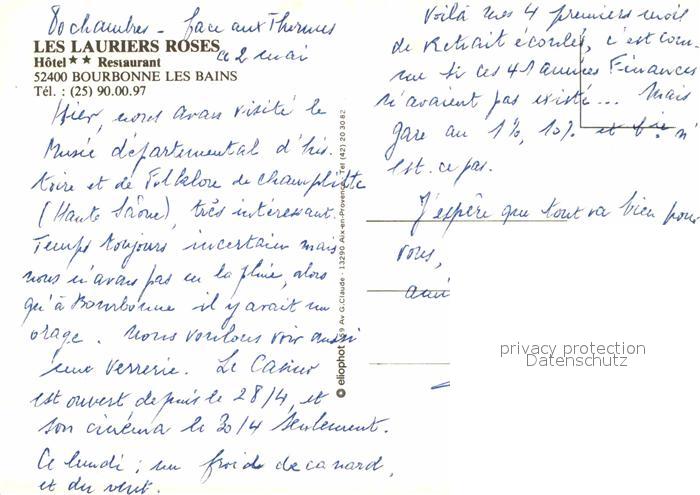 80 chambres - face aux Thermes
LES LAURIERS ROSES
ce 2 mai
Hôtel ★★ Restaurant
52400 BOURBONNE LES BAINS
Tél. : (25) 90.00.97
Hier, nous avons visité le
Musée départemental d'his-
toire et de Folklore de Champlitte
(Haute Saône), très intéressant.
Temps toujours incertain mais
nous n'avons pas eu la pluie, alors
qu'à Bourbonne il y avait un
orage. Nous voulons voir aussi
une verrerie. Le Casino
est ouvert depuis le 28/4, et
son cinéma le 30/4 seulement.
Ce lundi ; un froid de canard,
et du vent.
Voilà mes 4 premiers mois
de retrait écoulés, c'est com-
me si ces 41 années Finances
n'avaient pas existé... Mais
gare au 1%, 10% et n'
est-ce pas.
J'espère que tout va bien pour
vous,
ami
eliophot 59 Av G.Claude - 13290 Aix-en-Provence - Tel (42) 20 30 82
privacy protection
Datenschutz